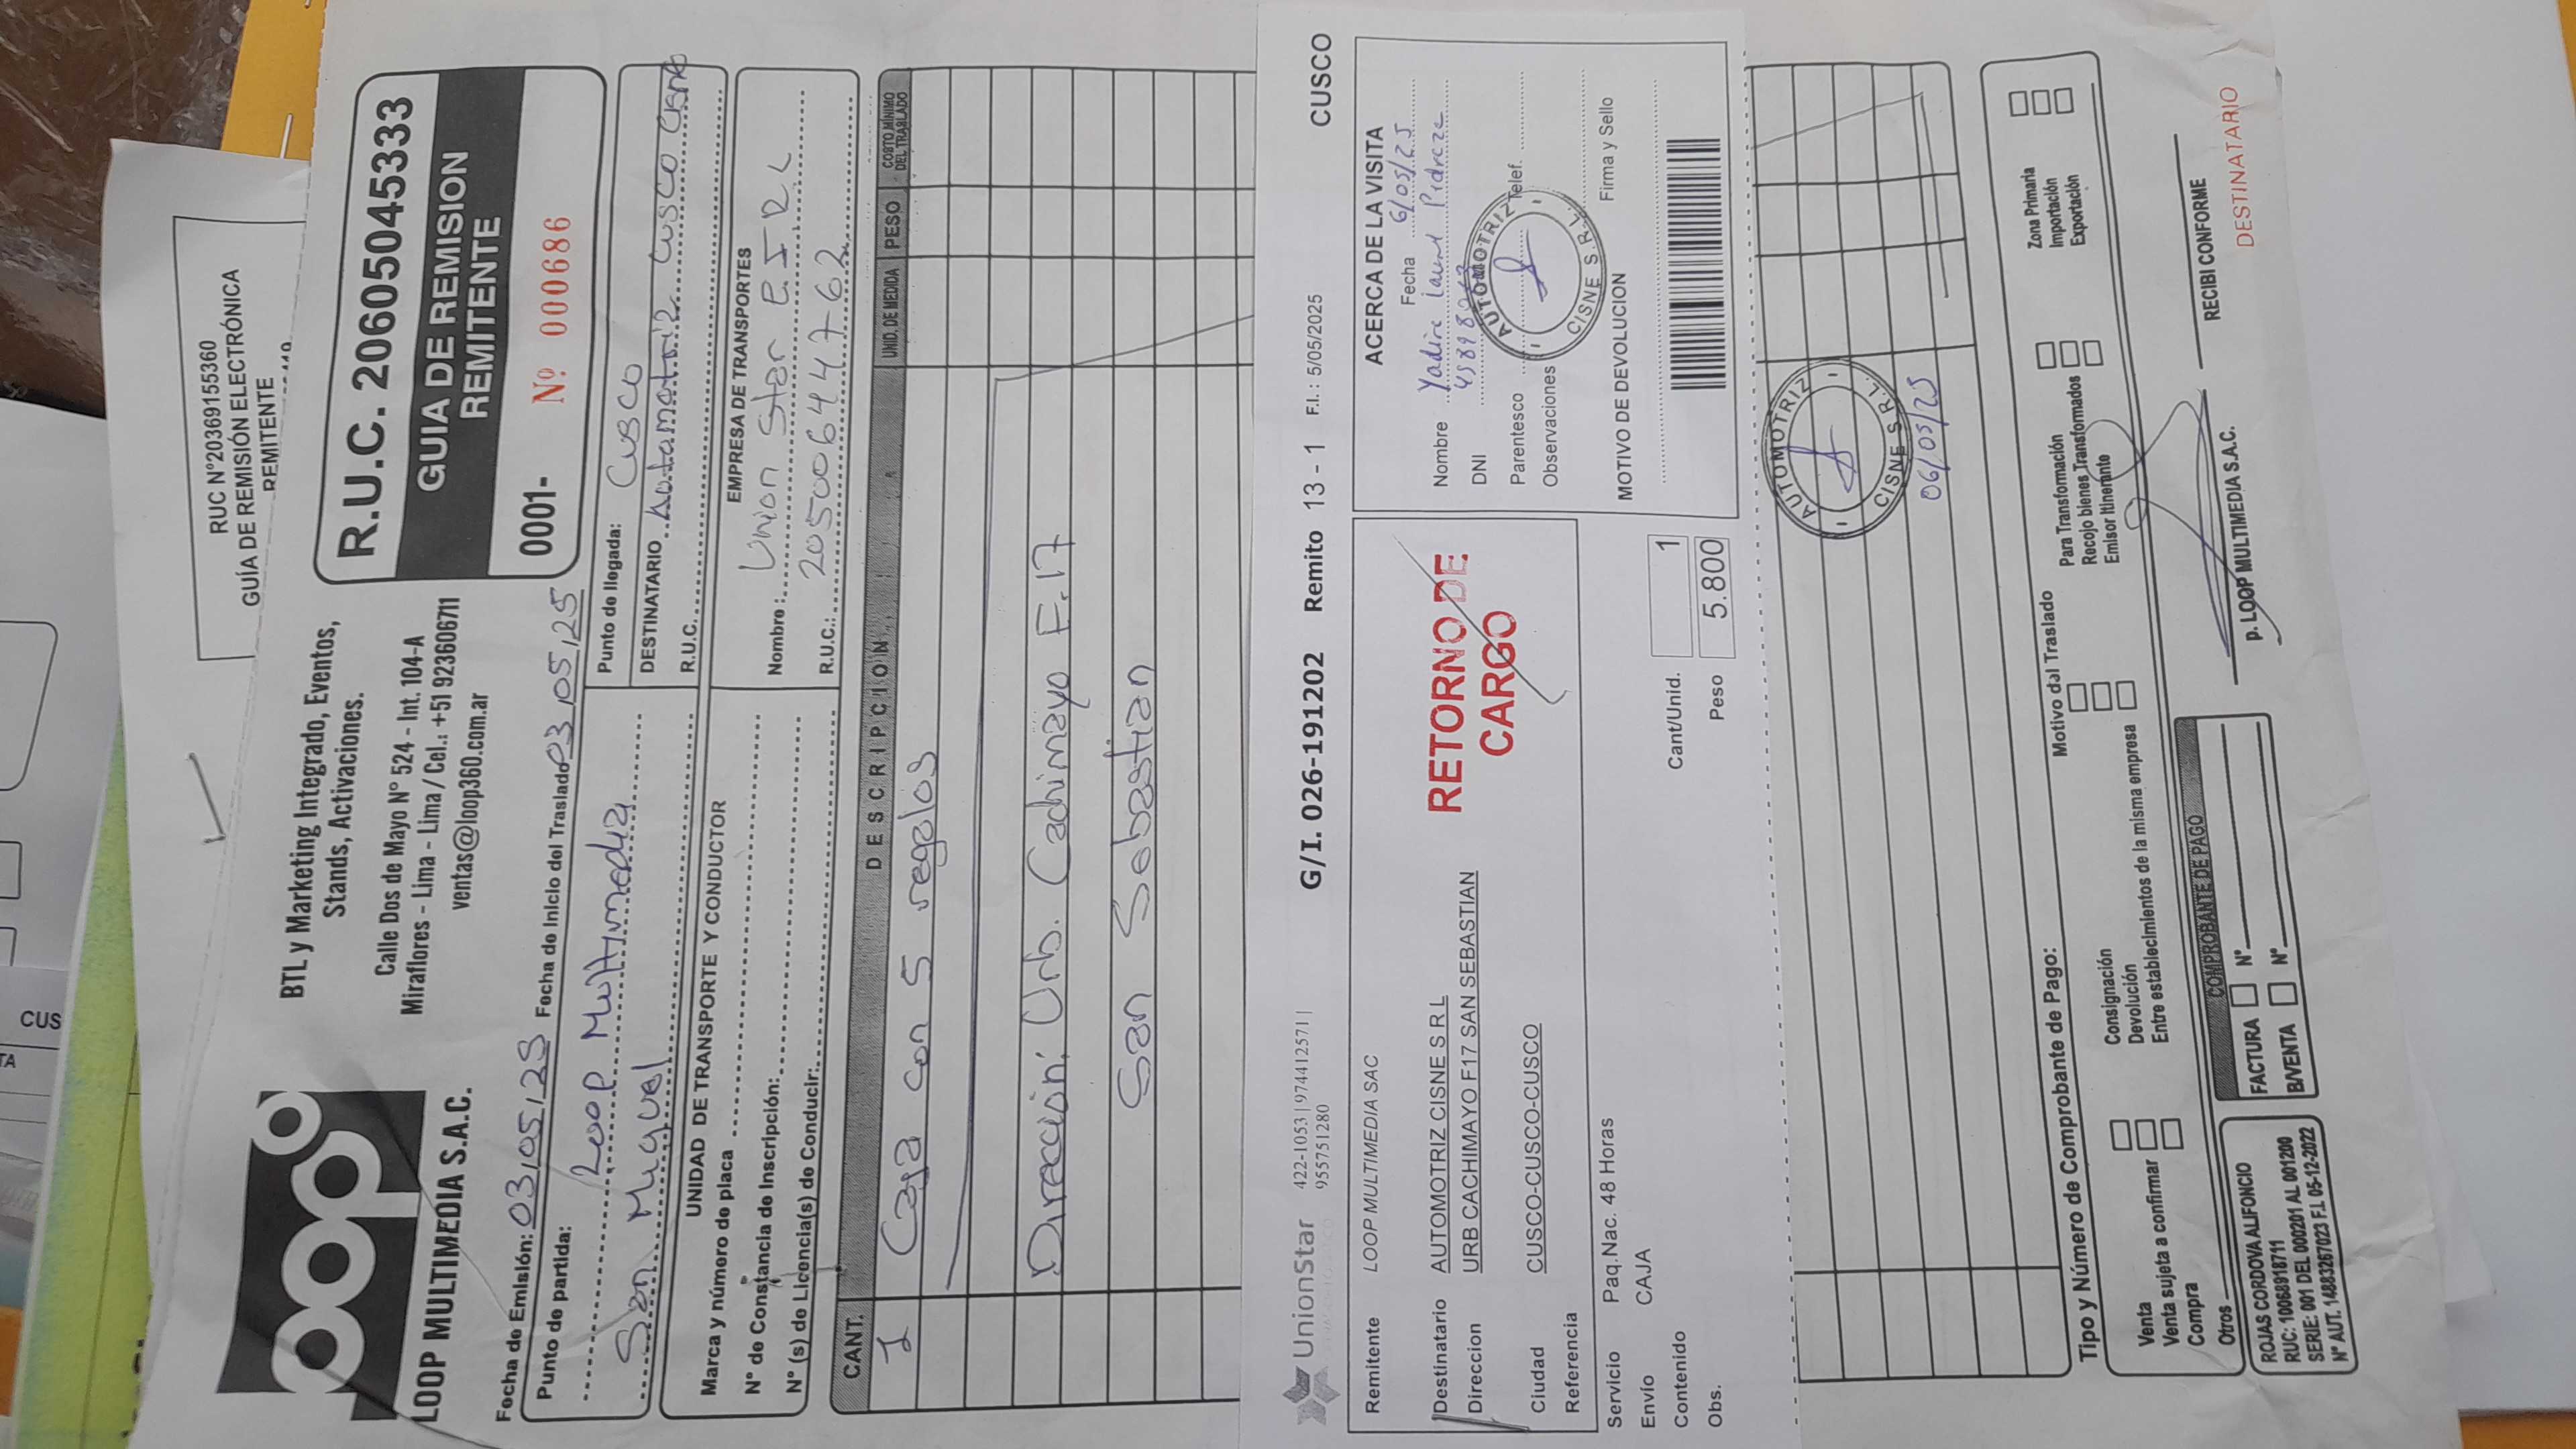 RUC N°20369155360
GUÍA DE REMISIÓN ELECTRÓNICA
REMITENTE
CUS
TA
loop
LOOP MULTIMEDIA S.A.C.
BTL y Marketing Integrado, Eventos,
Stands, Activaciones.
Calle Dos de Mayo N° 524 - Int. 104-A
Miraflores - Lima - Lima / Cel.: +51 923606711
ventas@loop360.com.ar
R.U.C. 20605045333
GUIA DE REMISION
REMITENTE
0001- Nº 000686
Fecha de Emisión: 03,05,25 Fecha de Inicio del Traslado 03,05,25
Punto de partida: Loop Multimedia
San Miguel
Punto de llegada: Cusco
DESTINATARIO Automotriz Cusco Cisne
R.U.C.
UNIDAD DE TRANSPORTE Y CONDUCTOR
Marca y número de placa
N° de Constancia de Inscripción:
N° (s) de Licencia(s) de Conducir:
EMPRESA DE TRANSPORTES
Nombre: Union Star E.I.R.L
R.U.C.: 20500644762
CANT. DESCRIPCION UNID. DE MEDIDA PESO COSTO MÍNIMO DEL TRASLADO
1 Caja con 5 regalos
Dirección: Urb. Cachimayo F.17
San Sebastian
UnionStar
422-1053 | 974412571 |
955751280
G/I. 026-191202 Remito 13 - 1 F.I.: 5/05/2025 CUSCO
Remitente LOOP MULTIMEDIA SAC
Destinatario AUTOMOTRIZ CISNE S R L
Direccion URB CACHIMAYO F17 SAN SEBASTIAN
Ciudad CUSCO-CUSCO-CUSCO
Referencia
RETORNO DE
CARGO
Servicio Paq.Nac. 48 Horas
Envío CAJA
Contenido
Obs.
Cant/Unid. 1
Peso 5.800
ACERCA DE LA VISITA
Fecha 6/05/25
Nombre Yadira
DNI
Parentesco Telef.
Observaciones
AUTOMOTRIZ
CISNE S.R.L.
MOTIVO DE DEVOLUCION Firma y Sello
AUTOMOTRIZ
CISNE S.R.L.
06/05/25
Tipo y Número de Comprobante de Pago:
Motivo del Traslado
Venta
Venta sujeta a confirmar
Compra
Otros
Consignación
Devolución
Entre establecimientos de la misma empresa
Para Transformación
Recojo bienes Transformados
Emisor Itinerante
Zona Primaria
Importación
Exportación
ROJAS CORDOVA ALIFONCIO
RUC: 10068918711
SERIE: 001 DEL 000201 AL 001200
N° AUT. 14883267023 F.I. 05-12-2022
COMPROBANTE DE PAGO
FACTURA N°
B/VENTA N°
p. LOOP MULTIMEDIA S.A.C.
RECIBI CONFORME
DESTINATARIO